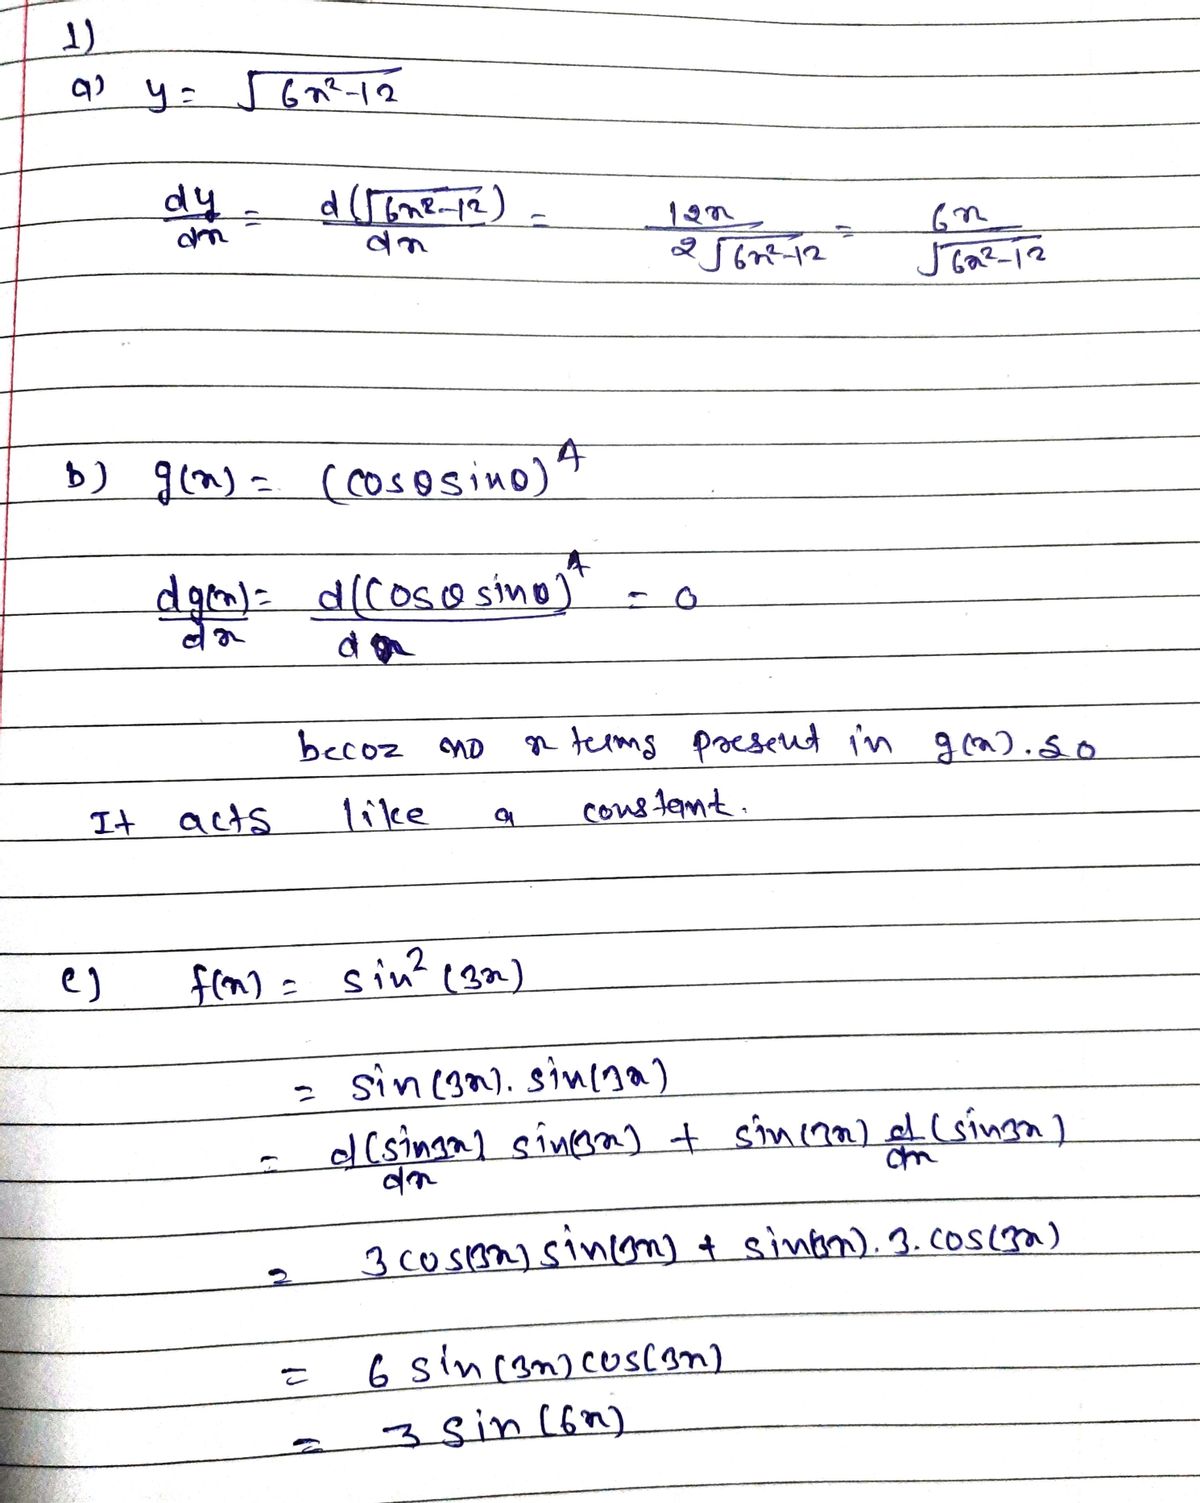 1)
a) y = √(6x²-12)
dy/dx = d(√(6x²-12))/dx = 12x/(2√(6x²-12)) = 6x/√(6x²-12)
b) g(x) = (cosθsinθ)⁴
dg(x)/dx = d(cosθsinθ)⁴/dx = 0
becoz no x terms present in g(x). so
It acts like a constant.
c) f(x) = sin²(3x)
= sin(3x). sin(3x)
= d(sin3x)/dx sin(3x) + sin(3x) d/dx (sin3x)
= 3cos(3x) sin(3x) + sin(3x). 3. cos(3x)
= 6 sin(3x) cos(3x)
= 3 sin(6x)